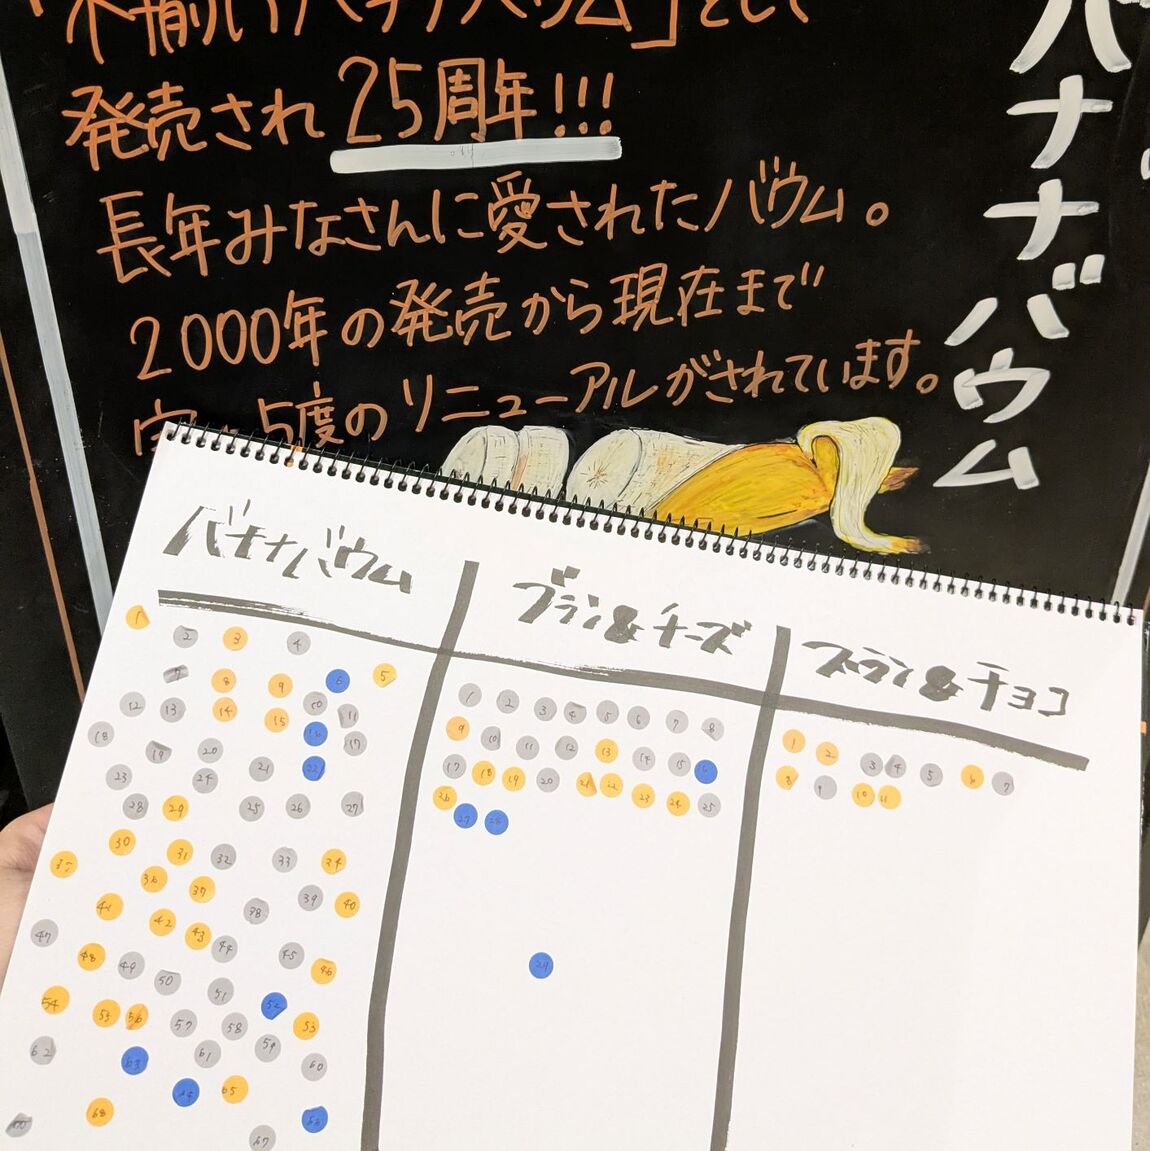 不揃いバナナバウム」として
発売され25周年!!!
長年みなさんに愛されたバウム。
2000年の発売から現在まで
5度のリニューアルがされています。
バナナバウム
バナナバウム
ブラン&チーズ
ブラン&チョコ
1 2 3 4
7 8 9 6 5
12 13 14 15 10 11
18 19 20 16 17
23 24 21 22
28 29 25 26 27
30 31 32 33 34
35 36 37 38 39 40
41 42 43 44 45 46
47 48 49 50 51 52 53
54 55 56 57 58 59 60
62 63 61
64 65
68 67
1 2 3 4 5 6 7 8
9 10 11 12 13 14 15
17 18 19 20 21 22 23 24 25
26 27 28
29
1 2 3 4 5 6 7
8 9 10 11